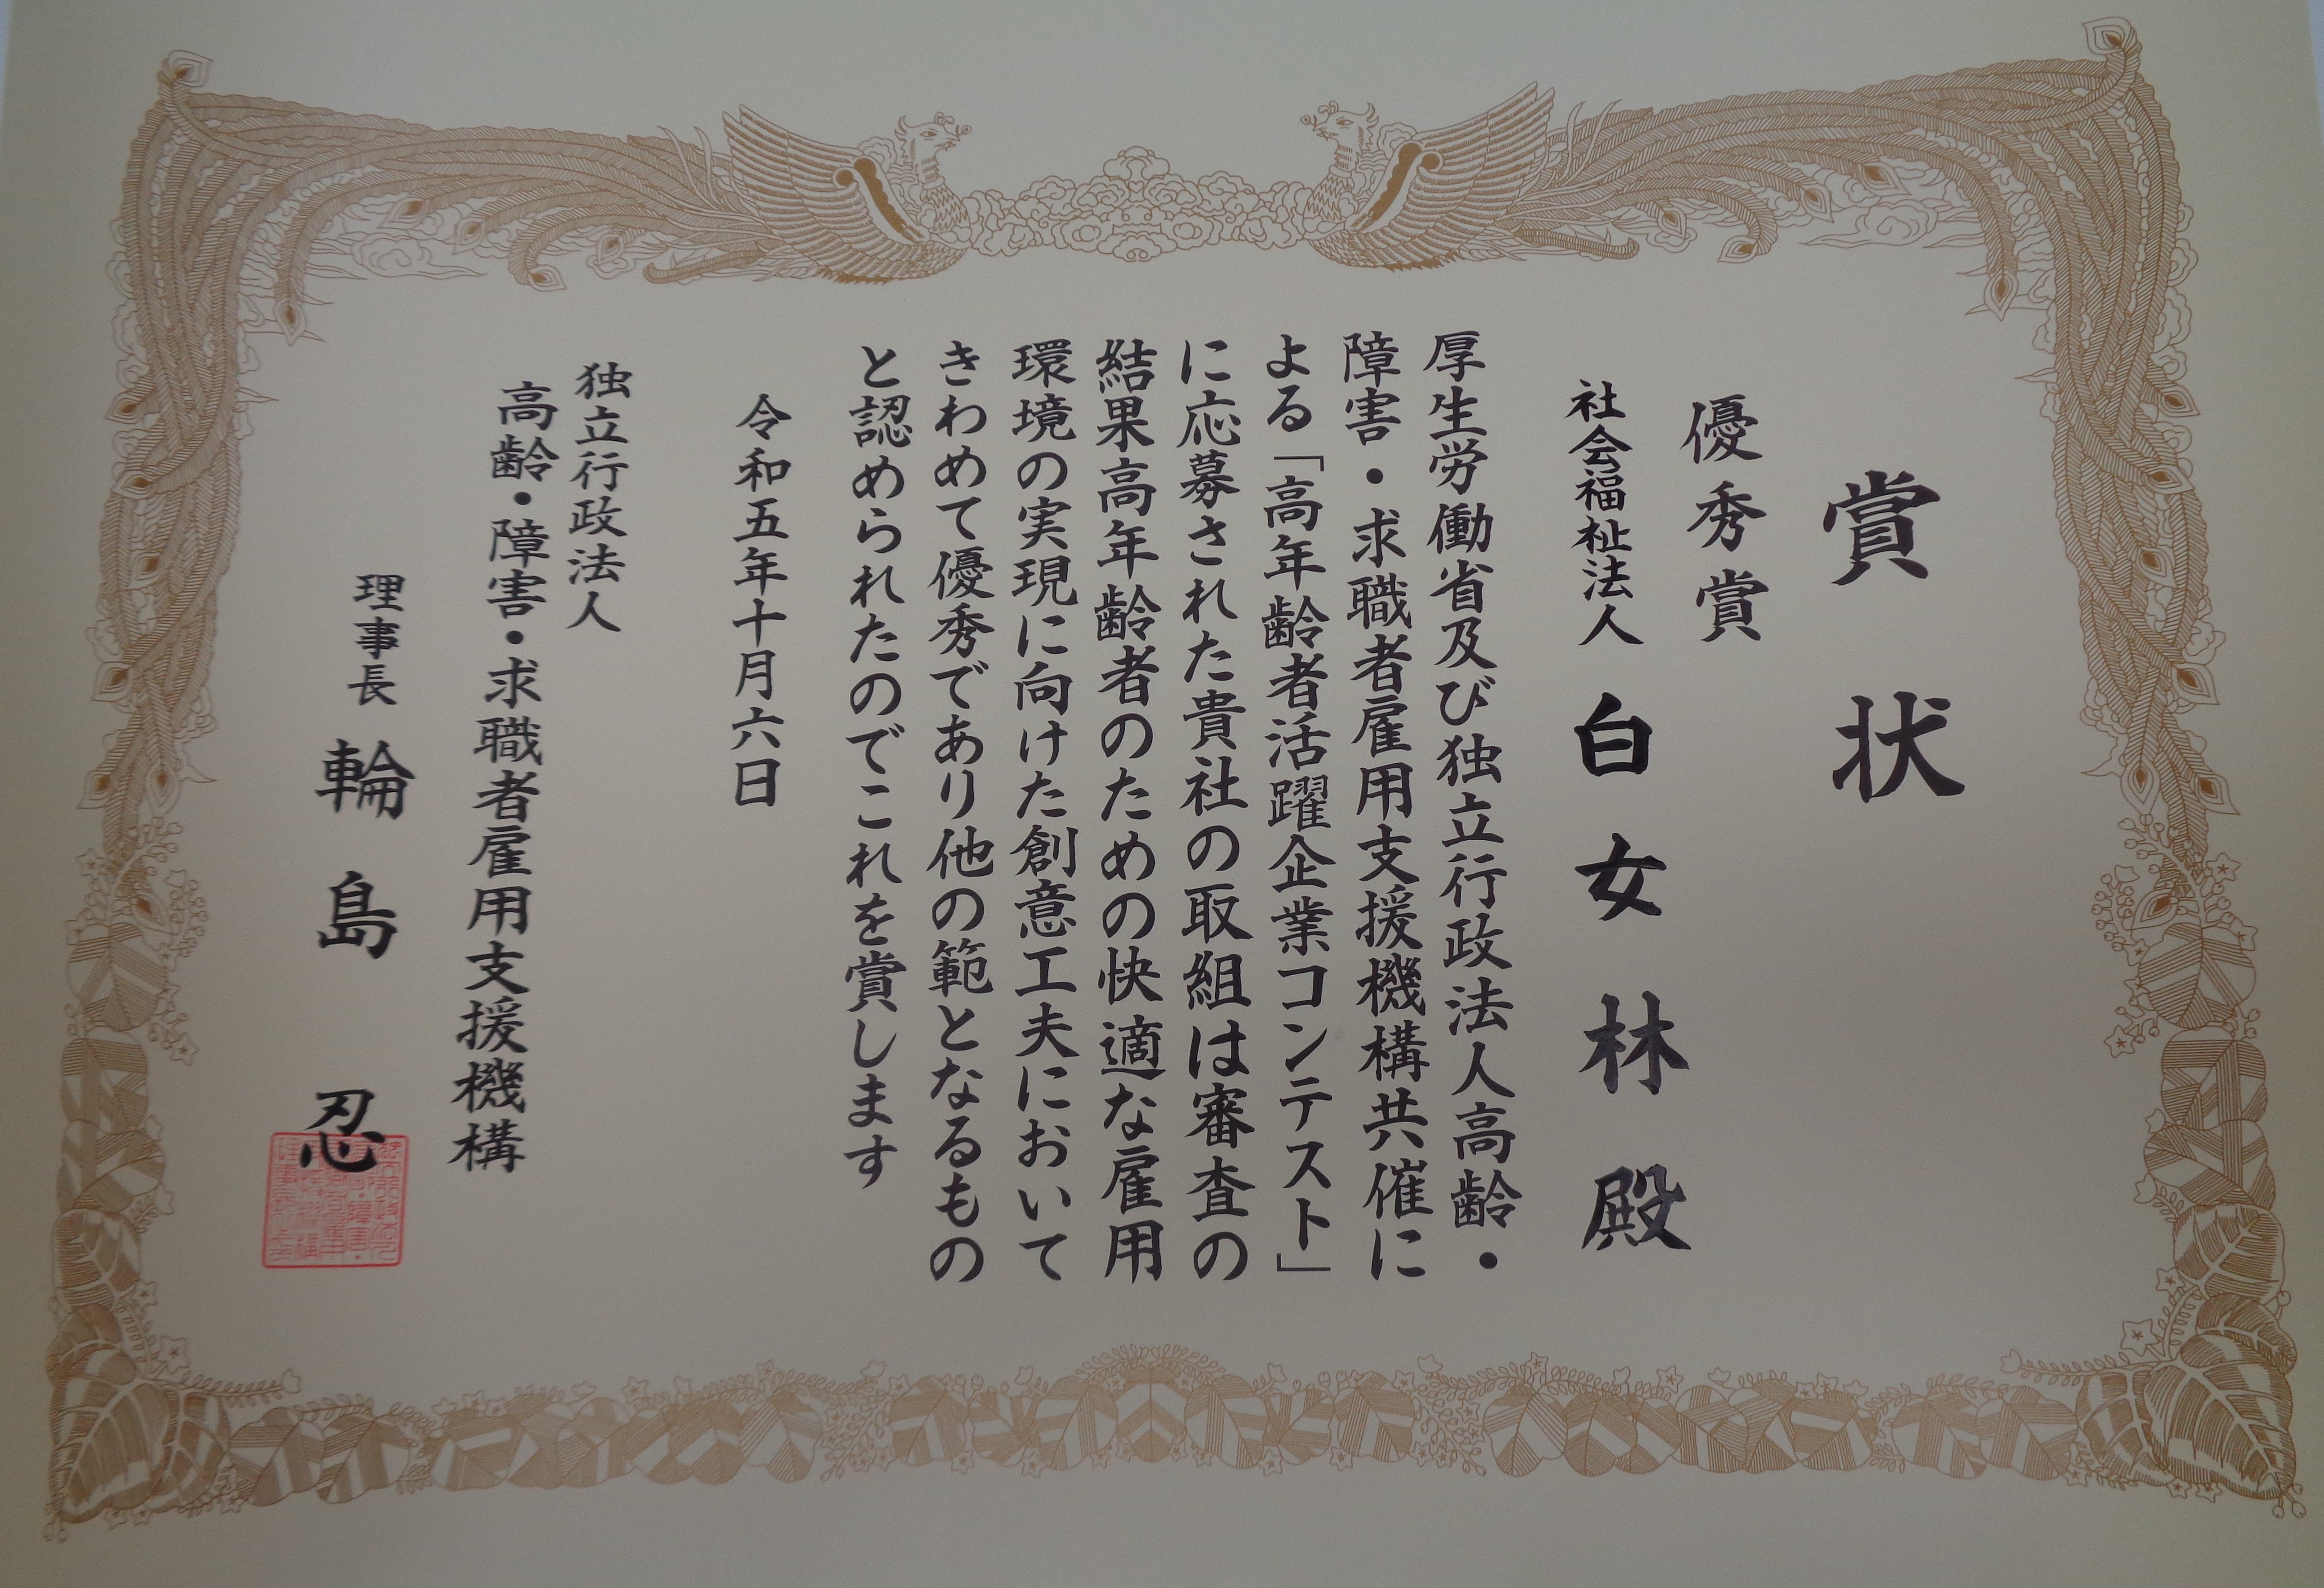 賞状
優秀賞
社会福祉法人 白女林殿
厚生労働省及び独立行政法人高齢・
障害・求職者雇用支援機構共催に
よる「高年齢者活躍企業コンテスト」
に応募された貴社の取組は審査の
結果高年齢者のための快適な雇用
環境の実現に向けた創意工夫において
きわめて優秀であり他の範となるもの
と認められたのでこれを賞します
令和五年十月六日
独立行政法人
高齢・障害・求職者雇用支援機構
理事長 輪島忍